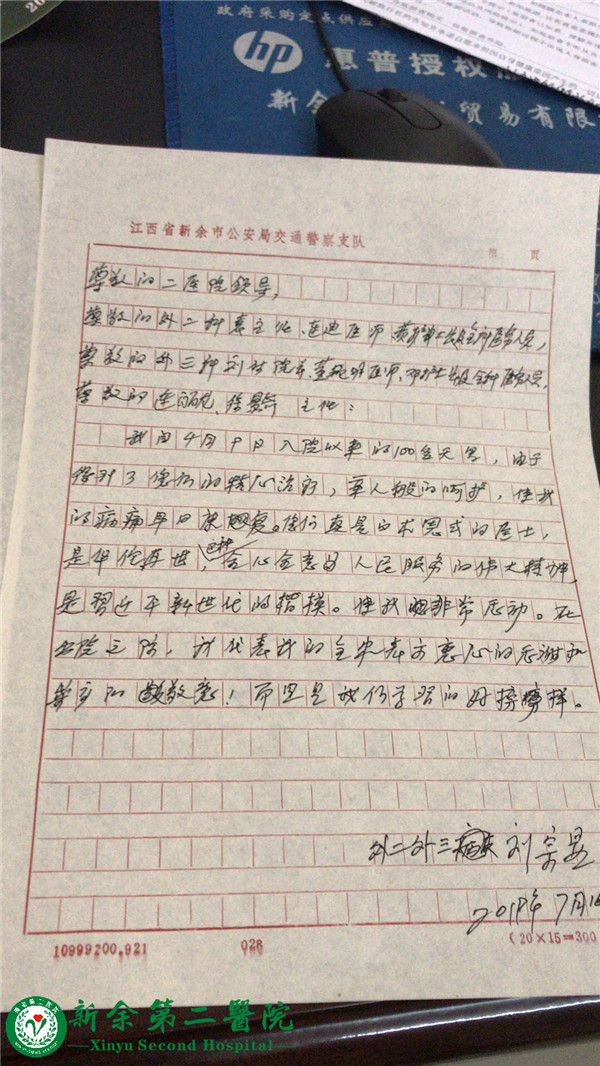 政府采购定点供应
hp 惠普授权
新余 贸易有限
江西省新余市公安局交通警察支队
第 页
尊敬的二医院领导,
尊敬的外二科 主任、 医师、 护士长及全科医务人员,
尊敬的外三科刘 院长、 医师、邓护士长及全科医务人员,
尊敬的 、徐 主任:
我由4月9日入院以来的100多天里,由于
得到了你们的精心治疗,亲人般的呵护,使我
的病痛早日康复。你们真是白求恩式的医士,
是华佗再世, 全心全意为人民服务的伟大精神,
是习近平新世代的楷模。使我 非常感动。在
出院之际,我代表我的全家表示衷心的感谢和
崇高的 敬意!而且是我们学习的好榜样。
外二外三病 刘宗
2018年7月1
10999200.921
028
(20×15=300
新余第二醫院
Xinyu Second Hospital